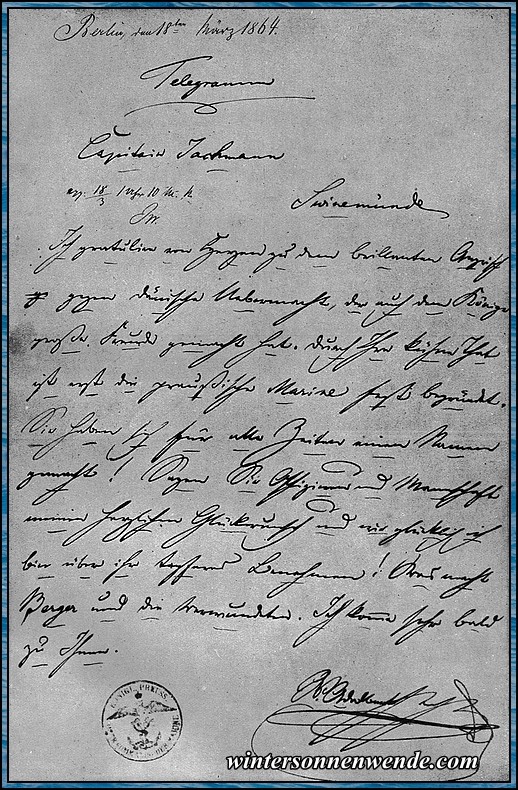 Berlin, den 18ten März 1864.
Telegramm
Capitain Jachmann
18/3 1 Uhr 10 M.
Swinemünde
Ich gratulire von Herzen zu dem brillanten
gegen dänische Uebermacht, der auch dem Könige
große Freude gemacht hat. Durch Ihre kühne That
ist erst die preußische Marine fest begründet.
Sie haben sich für alle Zeiten einen Namen
gemacht! Sagen Sie Offizieren und Mannschaft
meinen herzlichen Glückwunsch und wie glücklich ich
bin über ihr tapferes Benehmen! Was macht
Berger und die Verwundeten. Ich komme sehr bald
zu Ihnen.
Adalbert
KÖNIGL. PREUSS.
wintersonnenwende.com